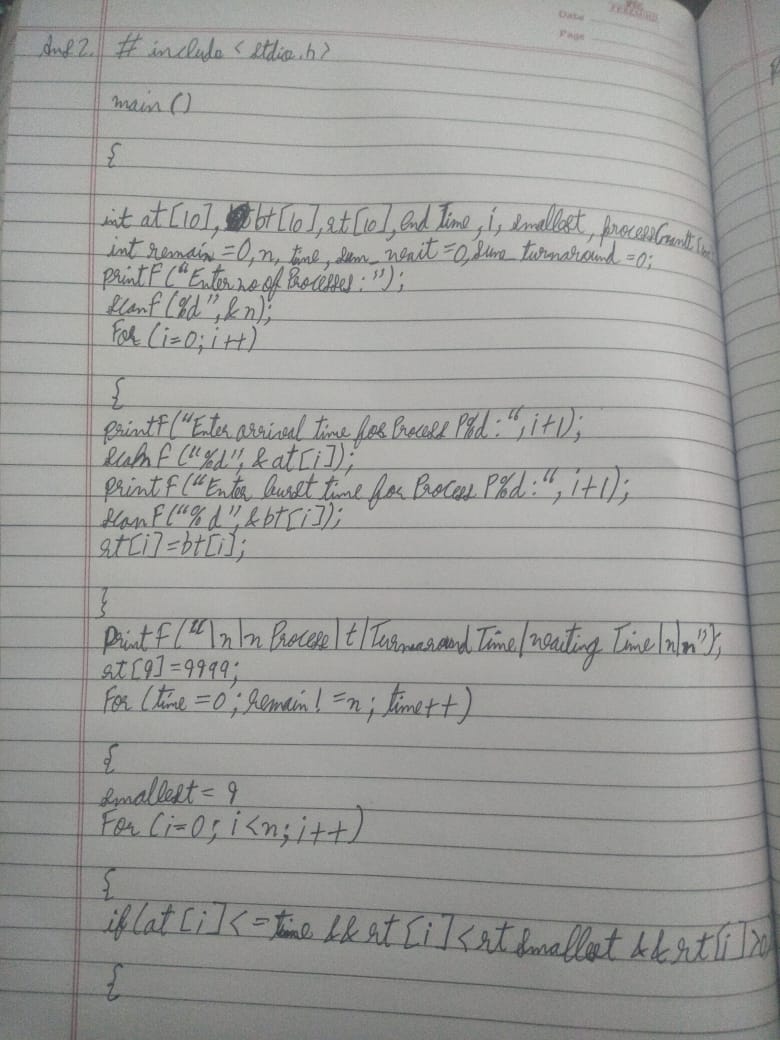 Date
Page
Ans 2. # include < stdio.h>
main ()
{
int at [10], bt [10], rt [10], end Time, i, smallest, processCount
int remain =0, n, time, sum_wait =0, sum_turnaround =0;
printf ("Enter no of Processes : ");
scanf (%d", &n);
For (i=0; i++)
{
printf ("Enter arrival time for Process P%d : ", i+1);
scanf ("%d", & at [i]);
printf ("Enter burst time for Process P%d : ", i+1);
scanf ("%d", &bt [i]);
rt [i] = bt [i];
}
printf ("\n\n Process|t|Turnaround Time|waiting Time|n|n");
rt [9] = 9999;
For (time =0 ; remain! =n ; time++)
{
smallest = 9
For (i=0; i<n; i++)
{
if (at [i] <= time && rt [i] <rt smallest && rt [i] >0
{